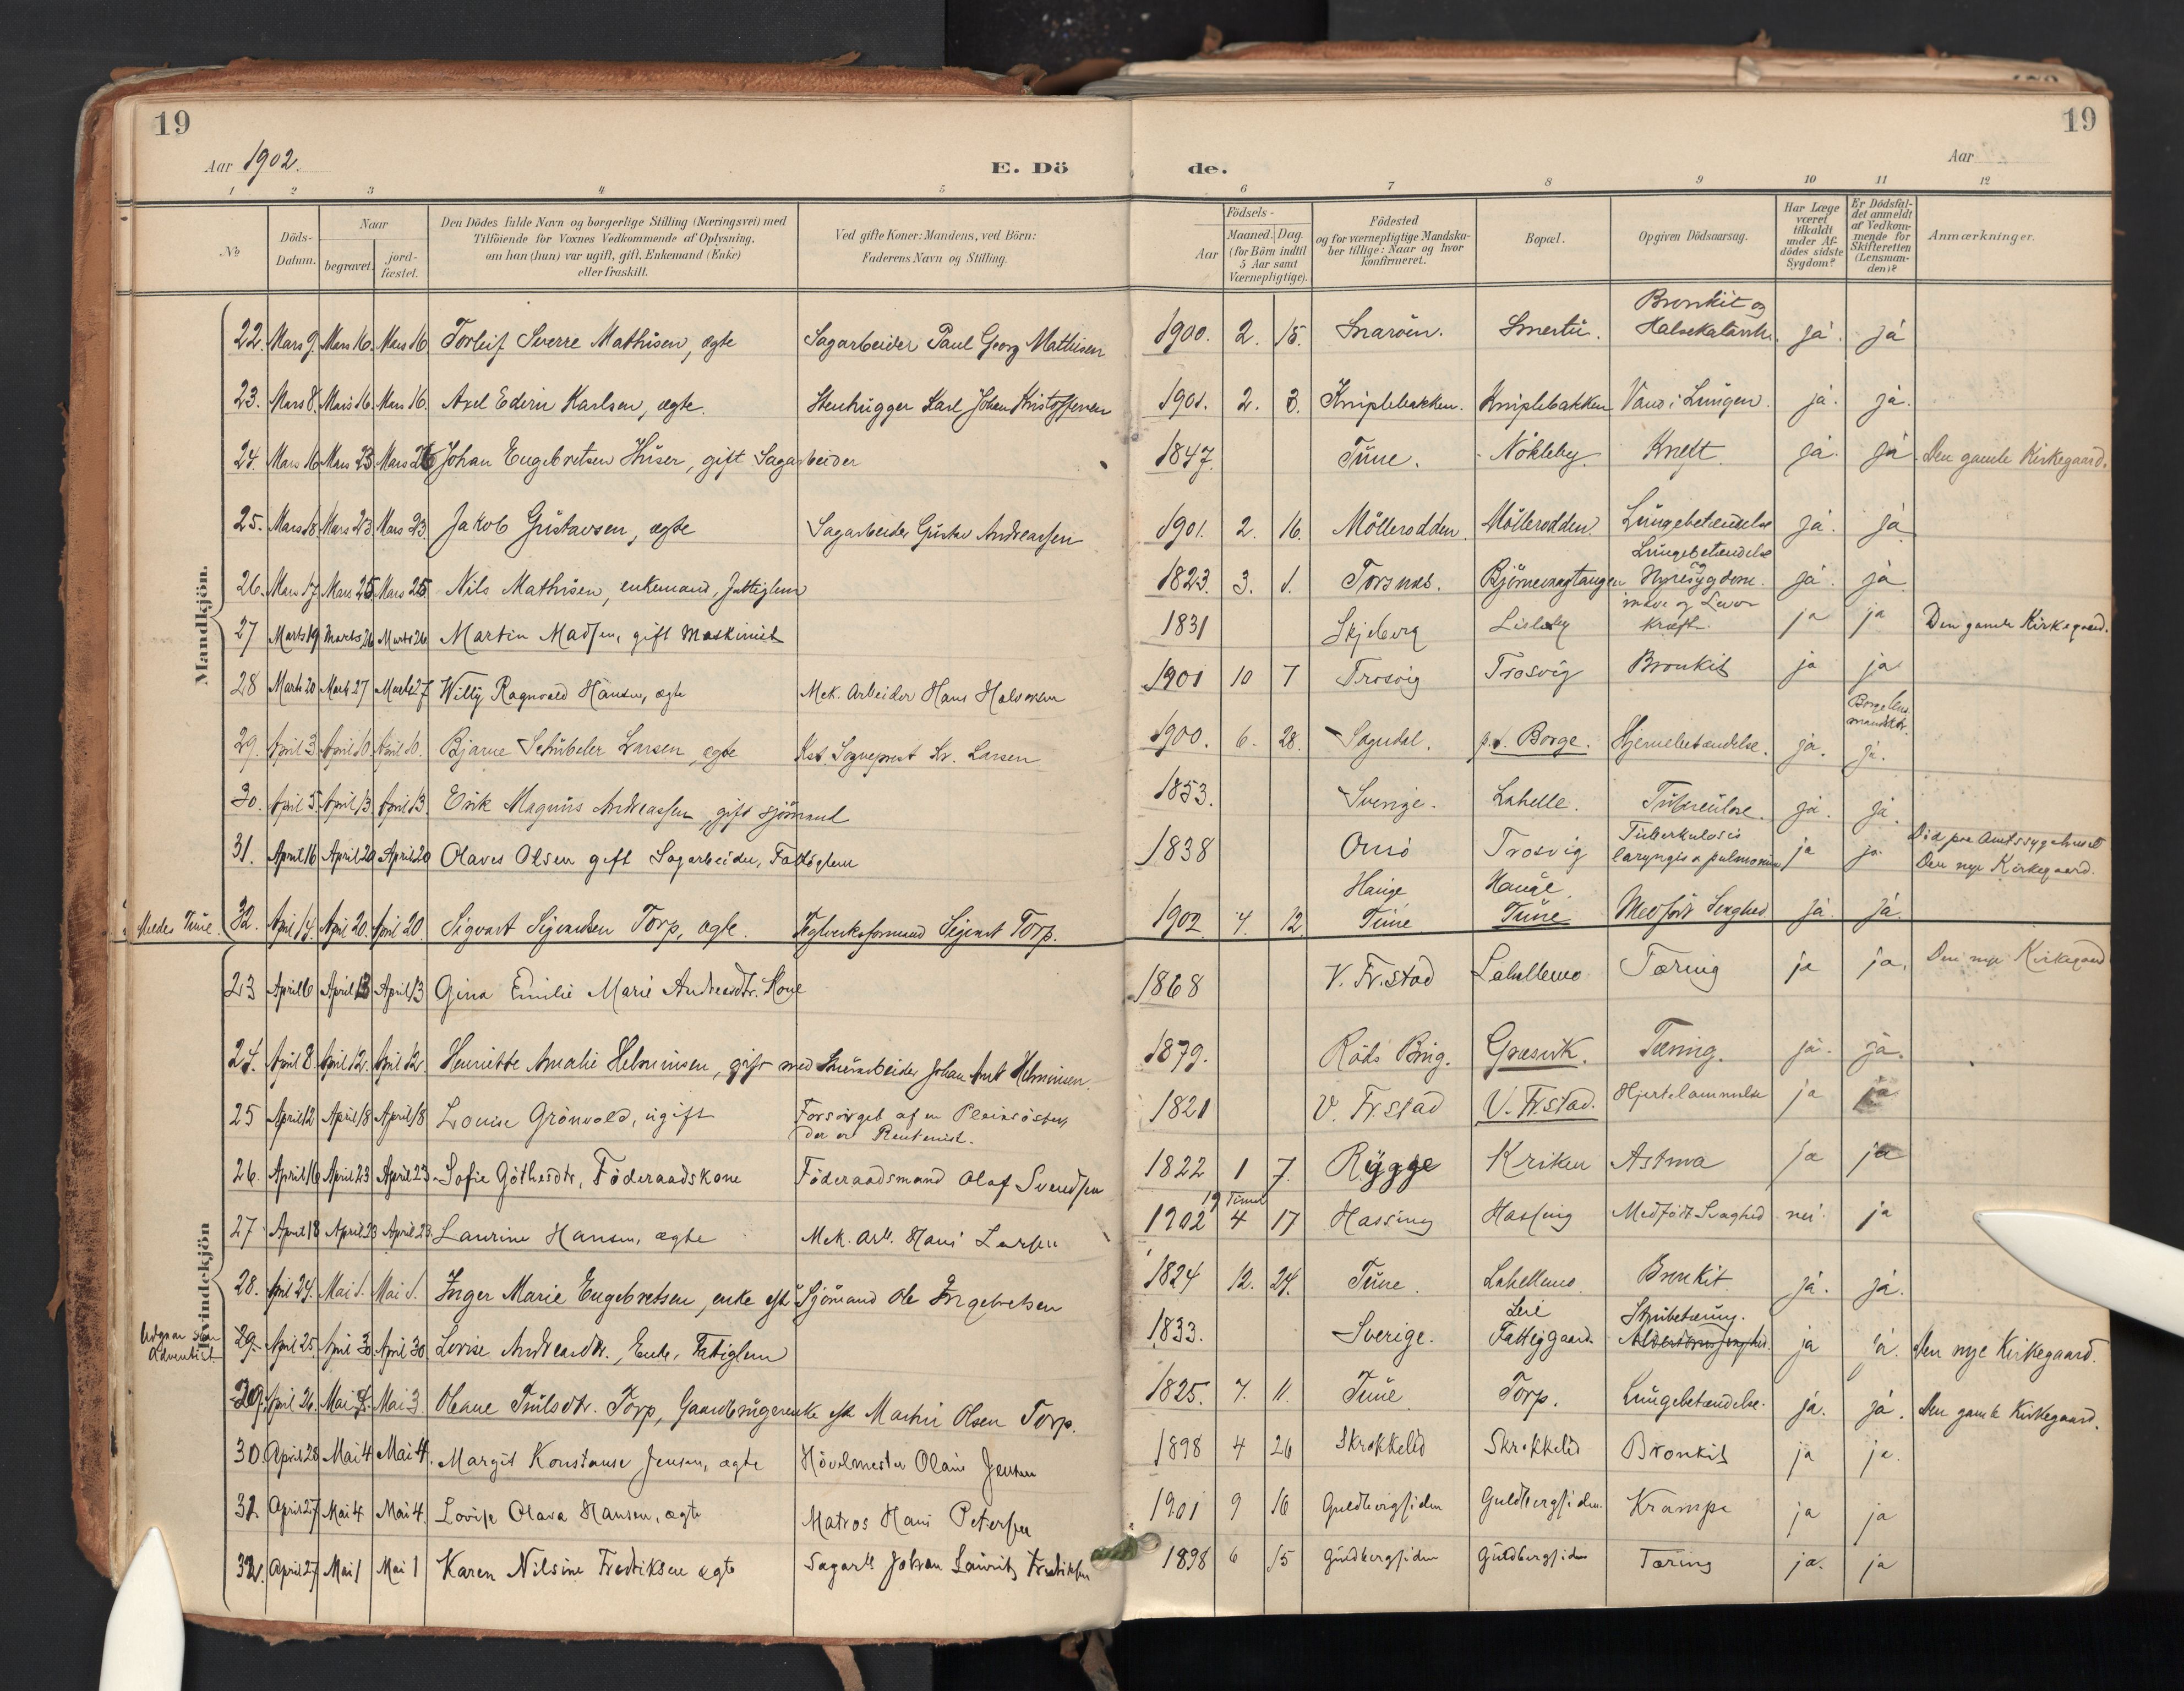 19
19
Aar 1902.
E. Dö
de.
Aar
1 2 3 4 5 6 7 8 9 10 11 12
No
Döds-Datum.
Naar
begravet.
jord-fæstet.
Den Dödes fulde Navn og borgerlige Stilling (Næringsvei) med
Tilföiende for Voxnes Vedkommende af Oplysning,
om han (hun) var ugift, gift, Enkemand (Enke)
eller fraskilt.
Ved gifte Koner: Mandens, ved Börn:
Faderens Navn og Stilling.
Födsels-
Aar
Maaned. Dag
(for Börn indtil
5 Aar samt
Værnepligtige).
Födested
og for værnepligtige Mandska-
ber tillige: Naar og hvor
konfirmeret.
Bopæl.
Opgiven Dödsaarsag.
Har Læge
været
tilkaldt
under Af-
dödes sidste
Sygdom?
Er Dödsfal-
det anmeldt
af Vedkom-
mende for
Skifteretten
(Lensman-
den)?
Anmærkninger.
Mandkjön.
22. Mars 9. Mars 16. Mars 16 Torleif Sverre Mathisen, ægte Sagarbeider Paul Georg Mathisen 1900. 2. 15. Snaröen. Smertu. Bronkit og Halsekatarrh. ja. ja
23. Mars 8. Mars 16. Mars 16. Axel Edvin Karlsen, ægte. Stenhugger Karl Johan Kristoffersen 1901. 2. 3. Kniplebakken. Kniplebakken Vand i Lungen. ja. ja.
24. Mars 16 Mars 23 Mars Johan Engebretsen Huser, gift Sagarbeider 1847. Tune. Nökleby. Kræft. ja. ja. Den gamle Kirkegaard.
25. Mars 18. Mars 23 Mars 23 Jakob Gustavsen, ægte Sagarbeider Gustav Andreassen 1901. 2. 16. Möllerodden. Möllerodden. Lungebetændelse ja. ja
26. Mars 17. Mars 25 Mars 25 Nils Mathisen, enkemand, fattiglem 1823. 3. 1. Torsnes. Björnevaagtangen Lungebetændelse og Nyresygdom. ja. ja
27 Marts 19 Marts 26 Marts 26 Martin Madsen, gift Maskinist 1831 Skjeberg Lisleby mave og Lever kræft. ja ja Den gamle Kirkegaard.
28 Marts 20 Marts 27 Marts 27 Willy Ragnvald Hansen, ægte Mek. Arbeider Hans Halvorsen 1901 10 7 Trosvig Trosvig Bronkit ja ja
29. April 3 April 10. April 10. Bjarne Schübeler Larsen, ægte Kst. Sogneprest Kr. Larsen 1900. 6. 28. Sogndal. p.t. Borge. Hjernebetændelse. ja. Borge Lensmandktr. ja.
30. April 5 April 13 April 13. Erik Magnus Andreassen, gift sjömand 1853. Sverige. Lahelle. Tuberculose. ja. ja.
31. April 16 April 20 April 20 Olaves Olsen gift Sagarbeider, Fattiglem 1838 Onsö Trosvig Tuberkulosis laryngis a pulmonum ja ja Död paa Amtssygehuset Den nye Kirkegaard.
Medes Tune. 32. April 14. April 20. April 20 Sigvart Sigvardsen Torp, ægte. Teglverksformand Sigvart Torp. 1902. 4. 12. Hauge Tune Hauge. Tune Medfödt Svaghed ja. ja.
Kvindekjön
23 April 6 April 13 April 13 Gina Emilie Marie Andreasdtr. Kone 1868 V. Fr.stad Lahellemo Tæring ja ja. Den nye Kirkegaard
24. April 8 April 12. April 12. Henriette Amalie Helminsen, gift med Murarbeider Johan Helminsen. 1879. Röds Brug. Græsvik. Tæring. ja. ja.
25 April 12 April 18 April 18 Louise Grönvold, ugift Forsörget af en Pleiesöster, der er Rentenist. 1821 V. Fr.stad V. Fr.stad. Hjertelammelse ja ja
26. April 16 April 23 April 23 Sofie Göthesdtr, Föderaadskone Föderaadsmand Olaf Svendsen 1822 1 7. Rygge Kriken Astma ja ja
27 April 18 April 23 April 23. Laurine Hansen, ægte Mek. Arb. Hans Larsen 1902 19 Timer 4 17 Hassing Hassing Medfödt Svaghed nei. ja
28. April 24. Mai 1. Mai 1. Inger Marie Engebretsen, enke efter Sjömand Ole Ingebretsen 1824 12. 24. Tune. Lahellemo Bronkit. ja. ja.
Udgaar som Adventist 29. April 25. April 30 April 30 Lovise Andreasdtr., Enke, Fattiglem 1833. Sverige. Leie Fattiggaard. Strubetæring. Alderdomssvaghed. ja ja. Den nye Kirkegaard.
29. April 26. Mai 3. Mai 3. Oleane Trulsdtr. Torp, Gaardbrugerenke efter Martin Olsen Torp. 1825. 7. 11. Tune Torp. Lungebetændelse. ja. ja. Den gamle Kirkegaard.
30 April 28 Mai 4 Mai 4. Margit Konstanse Jensen, ægte Hövelmester Olaus Jensen 1898 4 26 Skrokkelid Skrokkelid Bronkit ja ja.
31 April 27 Mai 4 Mai 4. Lovise Olava Hansen, ægte Matros Hans Petersen 1901 9 16 Guldbergsiden Guldbergsiden. Krampe ja ja
32. April 27 Mai 1 Mai 1 Karen Nilsine Fredriksen ægte Sagarb. Johan Lauritz Fredriksen 1898 6 15 Guldbergsiden Guldbergsiden Tæring ja. ja